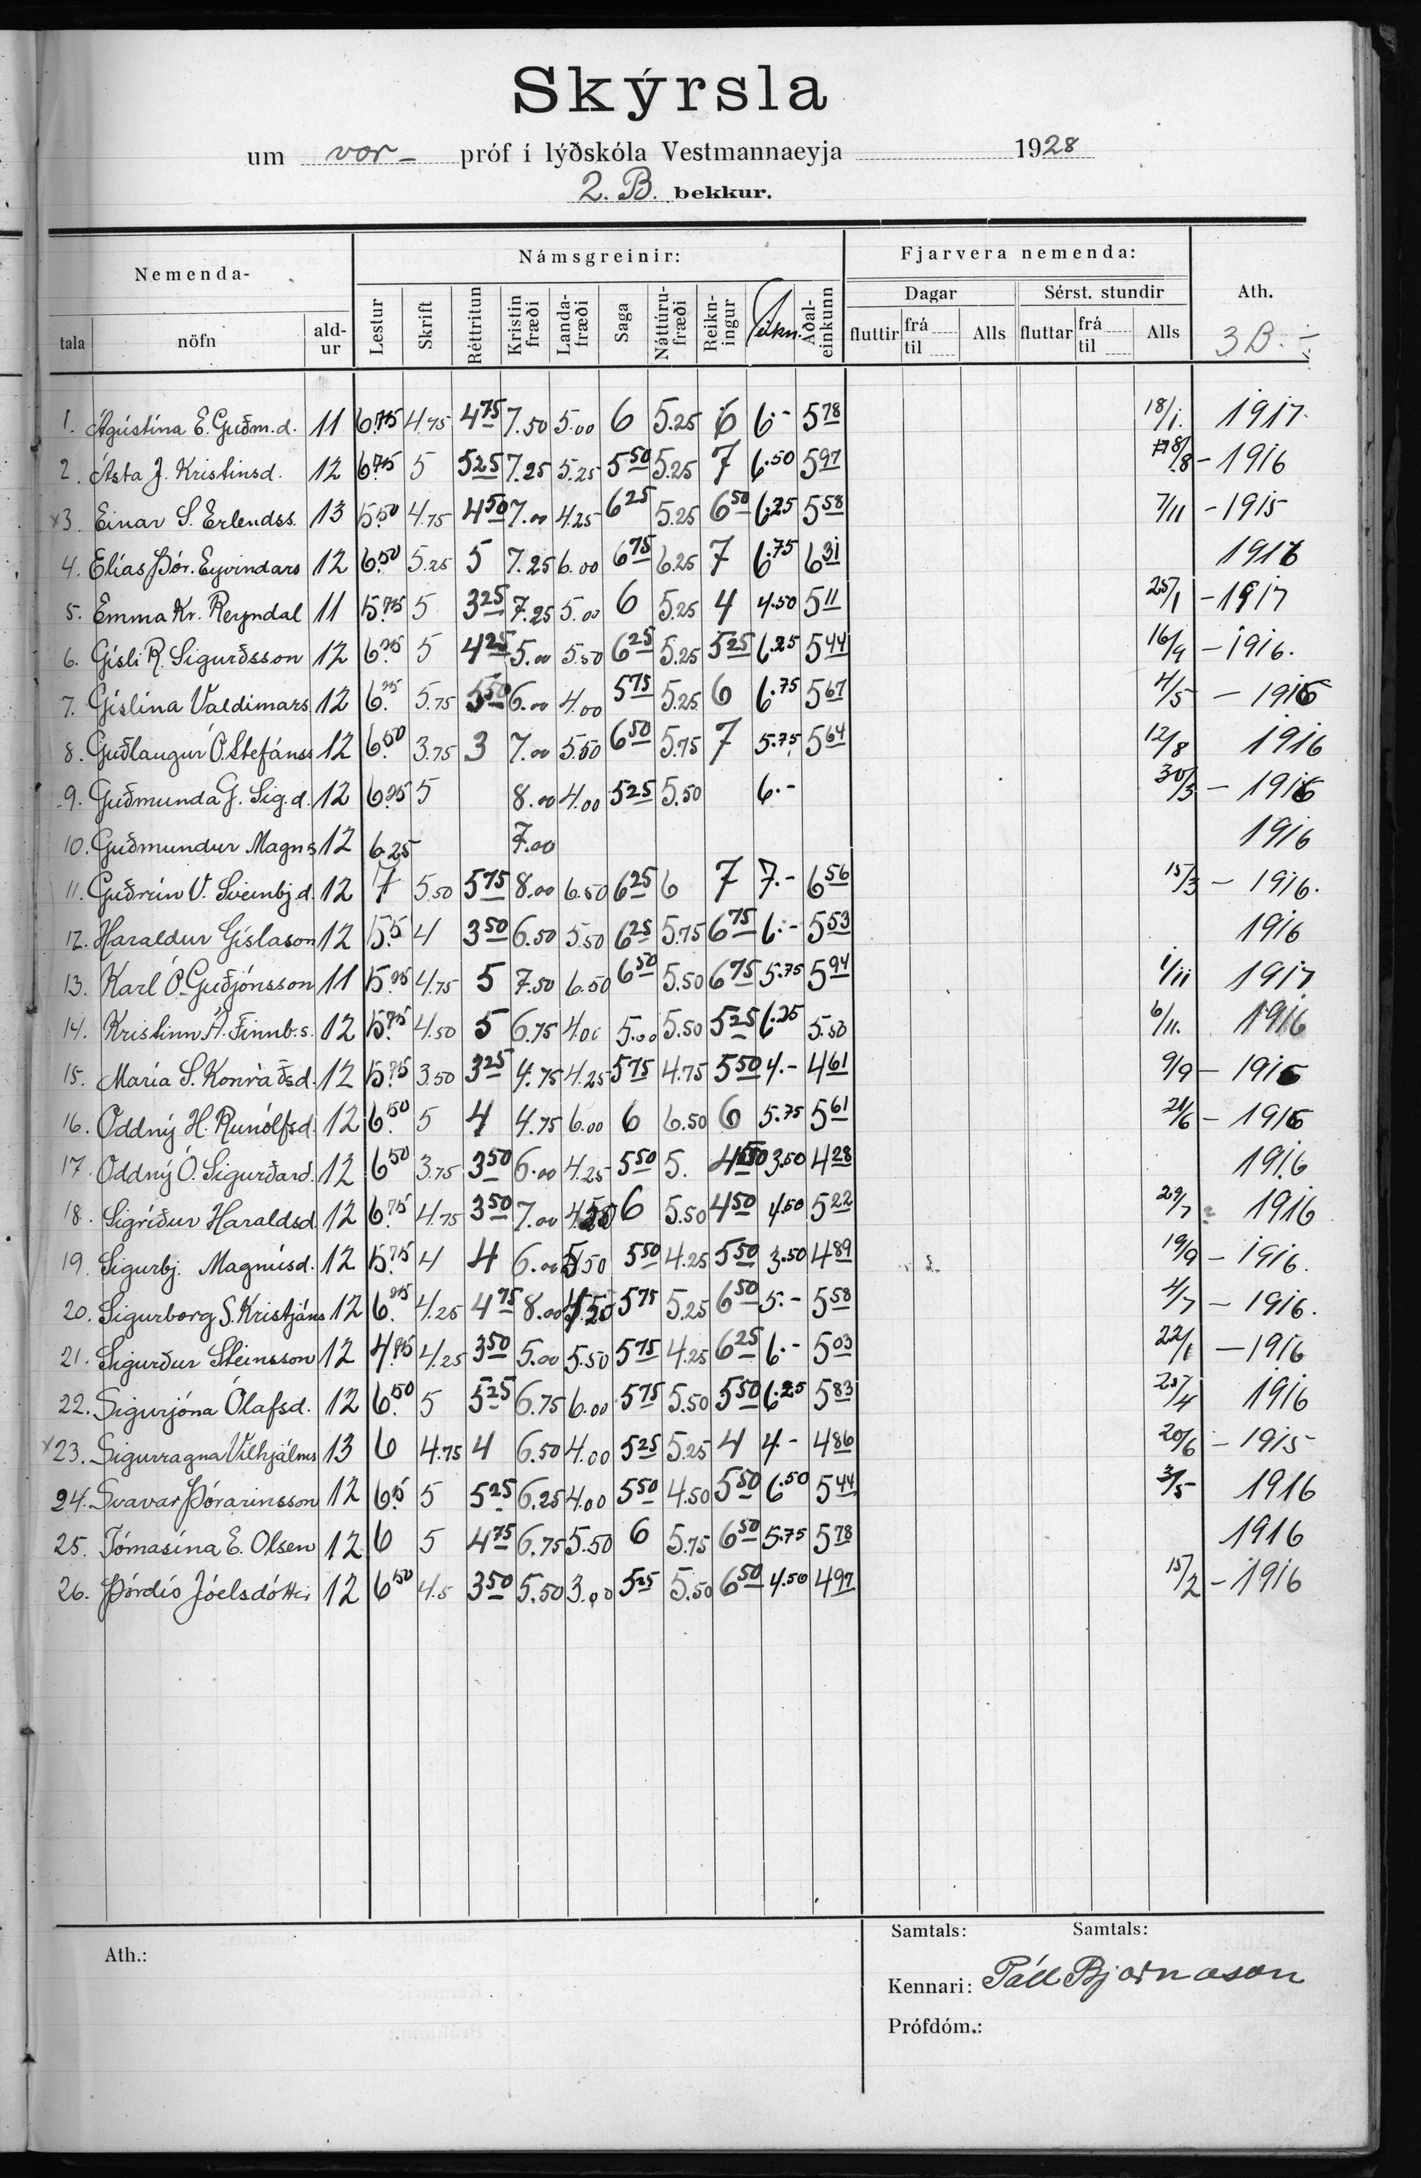 Skýrsla
um vor- próf í lýðskóla Vestmannaeyja 1928
2. B. bekkur.
Nemenda- Námsgreinir: Fjarvera nemenda: Ath.
Dagar Sérst. stundir
tala nöfn ald-ur Lestur Skrift Réttritun Kristinfræði Landa-fræði Saga Náttúru-fræði Reikn-ingur Teikn. Aðal-einkunn fluttir frá til Alls fluttar frá til Alls 3 B. -
1. Ágústína E. Guðm.d. 11 6.75 4.75 4 75 7.50 5.00 6 5.25 6 6.- 5 78 18/1. 1917.
2. Ásta J. Kristinsd. 12 6.75 5 5 25 7.25 5.25 5 50 5.25 7 6.50 5 97 18/8 - 1916
x3. Einar S. Erlendss. 13 5.50 4.75 4 50 7.00 4.25 6 25 5.25 6 50 6.25 5 58 7/11 - 1915
4. Elías Þór. Eyvindars 12 6.50 5.25 5 7.25 6.00 6 75 6.25 7 6.75 6 31 1916
5. Emma Kr. Reyndal 11 5.75 5 3 25 7.25 5.00 6 5.25 4 4.50 5 11 25/1 - 1917
6. Gísli R. Sigurðsson 12 6.25 5 4 25 5.00 5.50 6 25 5.25 5 25 6.25 5 44 16/9 - 1916.
7. Gíslína Valdimars 12 6.25 5.75 5 50 6.00 4.00 5 75 5.25 6 6.75 5 67 4/5 - 1916
8. Guðlaugur Ó. Stefánss 12 6.50 3.75 3 7.00 5.50 6 50 5.75 7 5.75 5 64 12/8 1916
9. Guðmunda G. Sig.d. 12 6.25 5 8.00 4.00 5 25 5.50 6.- 30/3 - 1916
10. Guðmundur Magns 12 6.25 7.00 1916
11. Guðrún V. Sveinbj.d. 12 7 5.50 5 75 8.00 6.50 6 25 6 7 7.- 6 56 15/3 - 1916.
12. Haraldur Gíslason 12 5.5 4 3 50 6.50 5.50 6 25 5.75 6 75 6.- 5 53 1916
13. Karl Ó. Guðjónsson 11 5.25 4.75 5 7.50 6.50 6 50 5.50 6 75 5.75 5 94 1/11 1917
14. Kristinn Á. Finnb.s. 12 5.75 4.50 5 6.75 4.00 5.00 5.50 5 25 6.25 5.50 6/11. 1916
15. María S. Konráðsd. 12 5.75 3.50 3 25 4.75 4.25 5 75 4.75 5 50 4.- 4 61 9/9 - 1916
16. Oddný H. Runólfsd. 12 6.50 5 4 4.75 6.00 6 6.50 6 5.75 5 61 21/6 - 1916
17. Oddný Ó. Sigurðard. 12 6 50 3.75 3 50 6.00 4.25 5 50 5. 4 50 3.50 4 28 1916
18. Sigríður Haraldsd. 12 6.75 4.75 3 50 7.00 4.50 6 5.50 4 50 4.50 5 22 29/7 1916
19. Sigurbj. Magnúsd. 12 5.75 4 4 6.00 5.50 5 50 4.25 5 50 3.50 4 89 19/9 - 1916.
20. Sigurborg S. Kristjáns 12 6.25 4.25 4 75 8.00 5 75 5.25 6 50 5.- 5 58 4/7 - 1916.
21. Sigurður Steinsson 12 4.75 4.25 3 50 5.00 5.50 5 75 4.25 6 25 6.- 5 03 22/1 - 1916
22. Sigurjóna Ólafsd. 12 6.50 5 5 25 6.75 6.00 5 75 5.50 5 50 6.25 5 83 25/4 1916
x23. Sigurragna Vilhjálms 13 6 4.75 4 6.50 4.00 5 25 5.25 4 4.- 4 86 20/6 - 1915
24. Svavar Þórarinsson 12 6.5 5 5 25 6.25 4.00 5 50 4.50 5 50 6.50 5 44 3/5 1916
25. Tómasína E. Olsen 12 6 5 4 75 6.75 5.50 6 5.75 6 50 5.75 5 78 1916
26. Þórdís Jóelsdóttir 12 6 50 4.5 3 50 5.50 3.00 5 25 5.50 6 50 4.50 4 97 15/2 - 1916
Ath.: Samtals: Samtals:
Kennari: Páll Bjarnason
Prófdóm.: